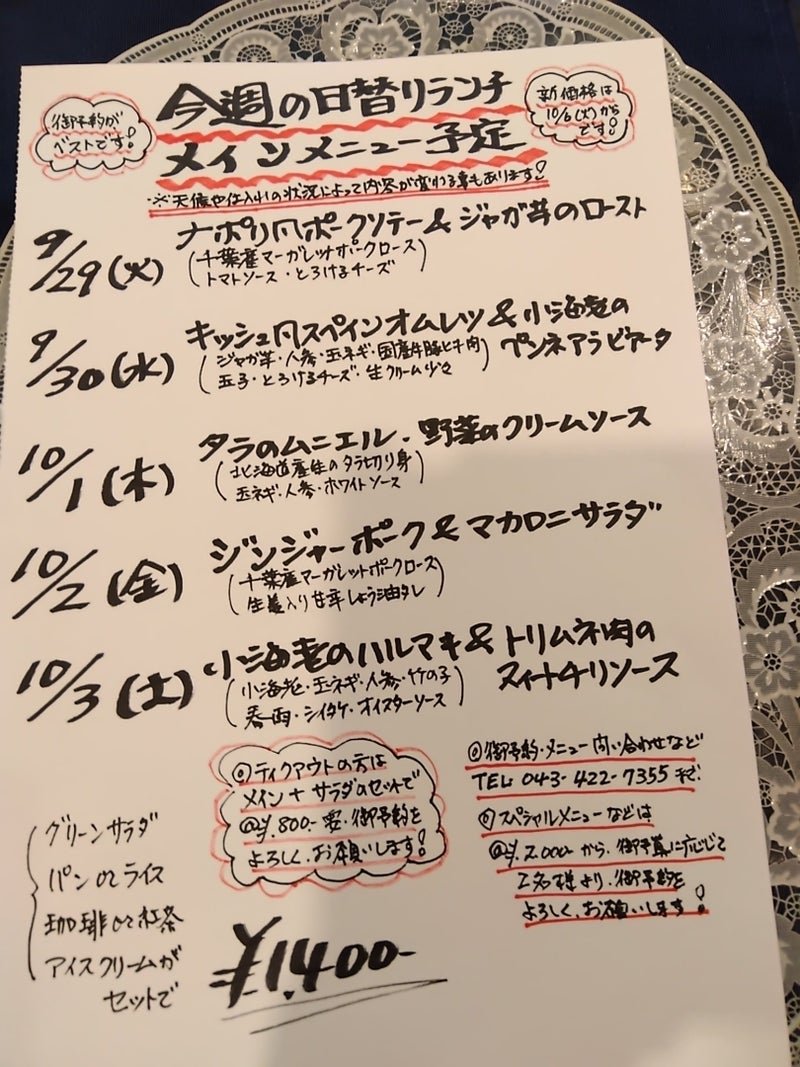 今週の日替りランチ
メインメニュー予定
御予約が
ベストです!
新価格は
10/6(火)から
です!
※天候や仕入れの状況によって内容が変わる事もあります!
9/29(火)
ナポリ風ポークソテー&ジャガ芋のロースト
(千葉産マーガレットポークロース
トマトソース・とろけるチーズ)
9/30(水)
キッシュ風スペインオムレツ&小海老の
ペンネアラビアータ
(ジャガ芋・人参・玉ネギ・国産牛豚ヒキ肉
玉子・とろけるチーズ・生クリーム少々)
10/1(木)
タラのムニエル、野菜のクリームソース
(北海道産生のタラ切り身
玉ネギ・人参・ホワイトソース)
10/2(金)
ジンジャーポーク&マカロニサラダ
(千葉産マーガレットポークロース
生姜入り甘辛しょう油タレ)
10/3(土)
小海老のハルマキ&トリムネ肉の
スイートチリソース
(小海老・玉ネギ・人参・竹の子
春雨・シイタケ・オイスターソース)
◎テイクアウトの方は
メイン+サラダのセットで
@¥800-要・御予約を
よろしく、お願いします!
◎御予約・メニュー問い合わせなど
TEL 043-422-7355まで
◎スペシャルメニューなどは
@¥2.000-から、御予算に応じて
2名様より、御予約を
よろしく、お願いします!
グリーンサラダ
パン or ライス
珈琲 or 紅茶
アイスクリームが
セットで
¥1,400-